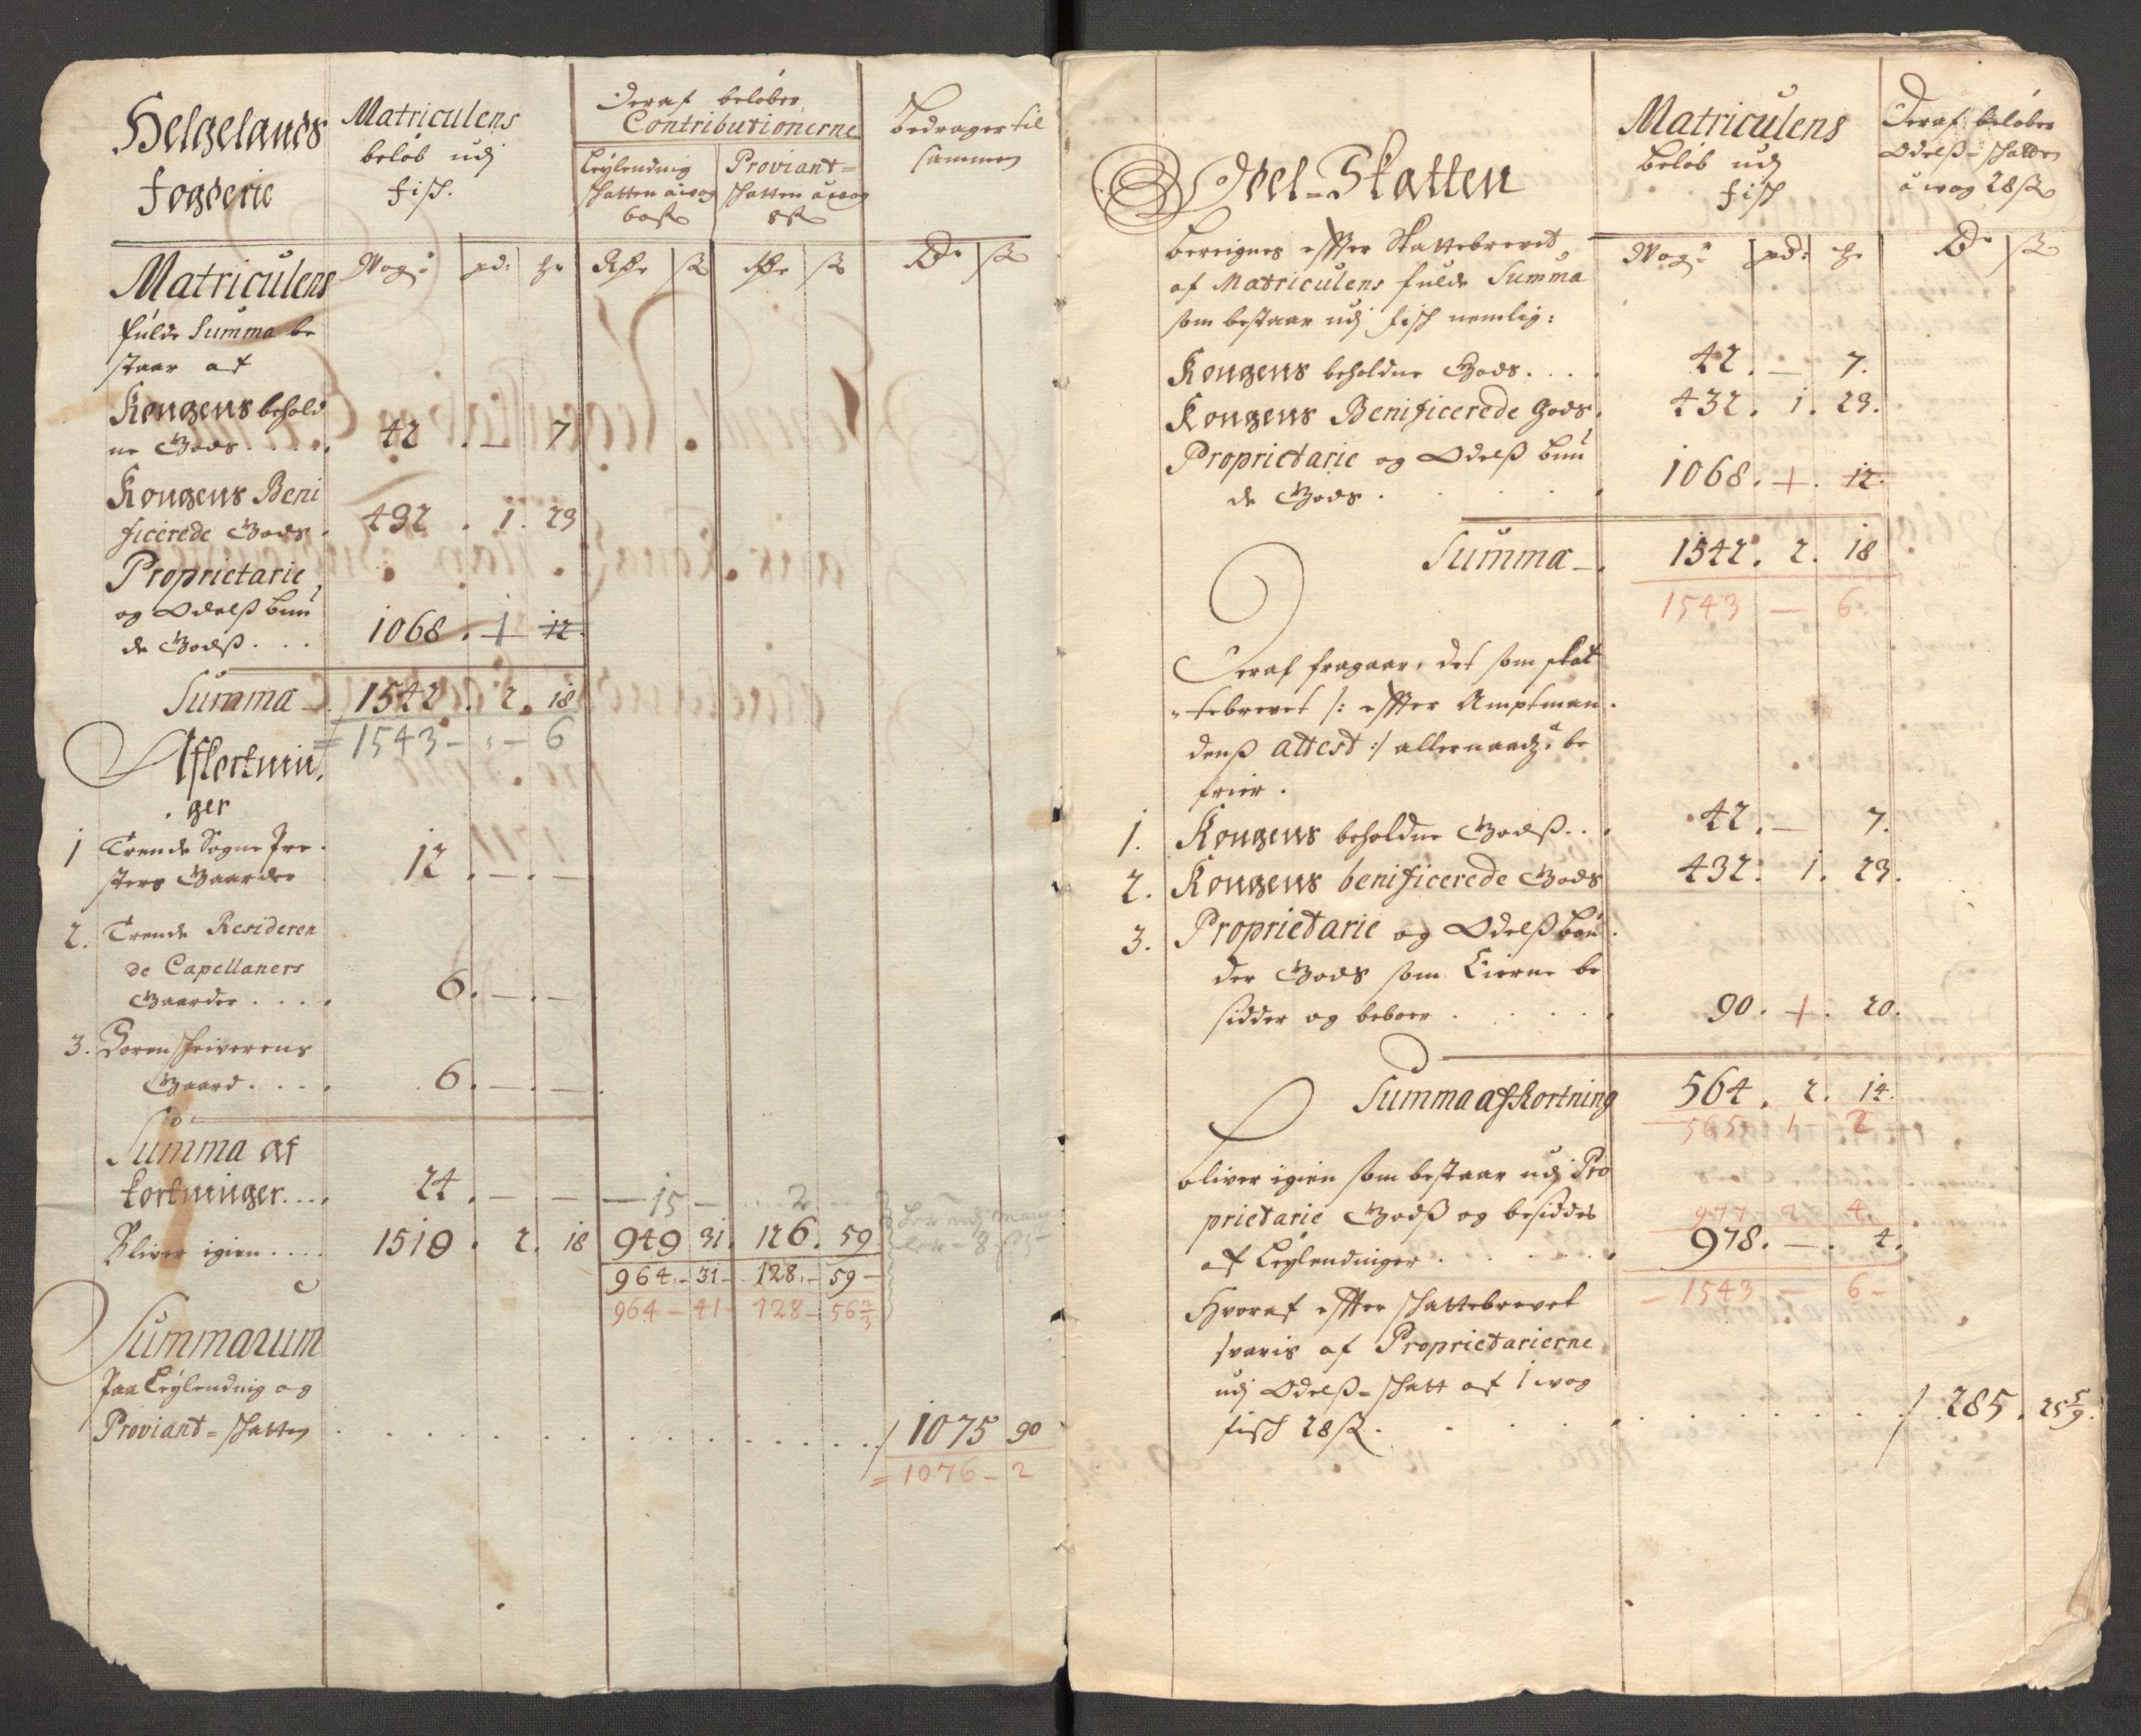 Helgelands
Fogderie
Matriculens
beløb udj
fisch.
Deraf beløber
Contributionerne
Leylending
schatten à wog
60 ß
Proviant=
schatten à wog
8 ß
Bedrager til
sammen
Matriculens
fulde Summa be
staar af
Wog: pd: ß ß Dr ß
Kongens behold
ne Gods . . . . 42 . — 7
Kongens Beni
ficerede Gods . 432 . 1. 23
Proprietarie
og Odelß bun
de Godß . . . 1068 . 1 12
Summa — 1542 . 2. 18
= 1543 - , - 6
Afkortnin,
ger
1 Trende Sogne Pre
sters Gaarder 12 . — . —
2. Trende Resideren
de Capellaners
Gaarder . . . . 6. — . —
3. Soren schriverens
Gaard . . . . 6. — . —
Summa af
kortninger . . . 24 . — . — — 15 — 2
Bliver igien . . . . 1518 . 2. 18 949 31. 126. 59
964. - 31 - 128. - 59 -
964 - 41 - 128 - 56 2/3
Summarum
Paa Leylending og
Proviant = schatten . . . . . . . . . . . 1075 90
= 1076 - 2
Odel=Skatten
Matriculens
Beløb udj
fisch
Deraf beløber
Odelß=schatten
à wog 28 ß
Bereignes effter Skattebrevet
af Matriculens fulde Summa
som bestaar udj fisch nemlig:
Wog: pd: Dr ß
Kongens beholdne Gods . . . . 42 . — 7.
Kongens Benificerede Gods . 432. 1. 23.
Proprietarie og Odelß bun
de Gods . . . . 1068. 1. 12.
Summa — . 1542. 2. 18
1543 — 6
Deraf fragaar, det som skat
tebrevet /: effter Amptman
denß attest :/ allernaadg: be
frier.
1. Kongens beholdne Godß . . . 42. — 7.
2. Kongens benificerede Gods 432. 1. 23.
3. Proprietarie og Odelß bøn
der Gods som Eierne be
sidder og beboer . . . . . 90. 1. 20.
Summa afkortning 564 . 2. 14.
565 1 - 2
bliver igien som bestaar udj Pro
prietarie Godß og besiddes 977 2 4.
af Leylendinger . . . . . 978. — . 4.
— 1543 — 6 -
Hvoraf effter schattebrevet
svaris af Proprietarierne
udj Odelß=schatt af 1 wog
fisch 28 ß . . . . . . . . . 285 . 25 5/9.